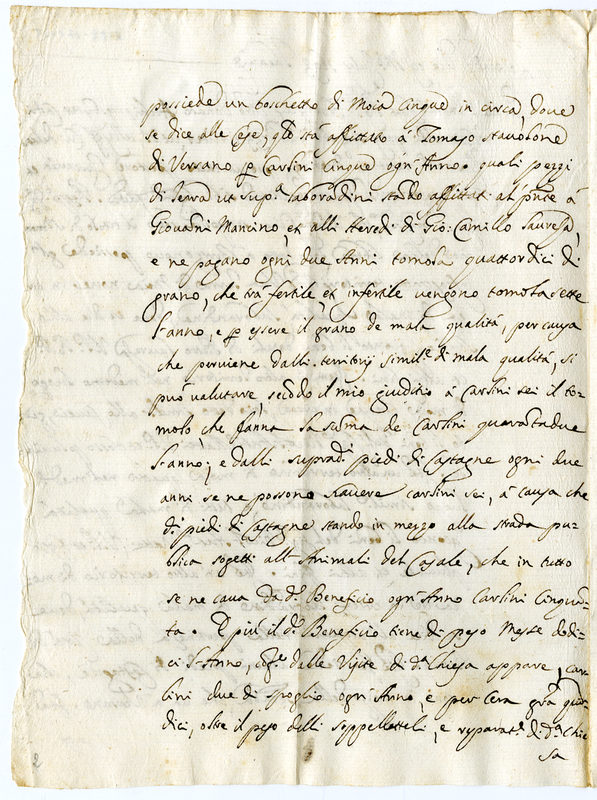 possiede un boschetto di Moia cinque in circa, dove
se dice alle Cese, q̃to stà affittato à Tomaso
di Versano p̱ Carlini cinque ogn'Anno. quali pezzi
di Terra ut sup.ª laboradini stando affittati al p̃nte à
Giovañi Mancino, et alli Heredi di Gio: Camillo
e ne pagano ogni due Anni tomola quattordici di
grano, che trà fertile, et infertile vengono tomola sette
l'anno, e p̱ essere il grano de mala qualità, per causa
che perviene dalli territorij simil.e di mala qualità, si
può valutare, secõdo il mio giuditio à Carlini sei il to-
molo, che fanna la summa de Carlini quarantadue
l'anno; e dalli suprad.i piedi di Castagne ogni due
anni se ne possono havere carlini sei, à causa che
d.i piedi di Castagne stando in mezzo alla strada pu-
blica sogetti all'Animali del Casale, che in tutto
se ne cava da d.o Beneficio ogn'Anno Carlini Cinquan-
ta. E più il d.o Beneficio tiene di peso Messe dodi-
ci l'Anno, dalle Visite di d.ª Chiesa appare, car-
lini due di spoglio ogn'Anno, e per Cera grã quin-
dici, oltre il peso delli Soppellettili, e reparat.e di d.ª Chie
sa
2